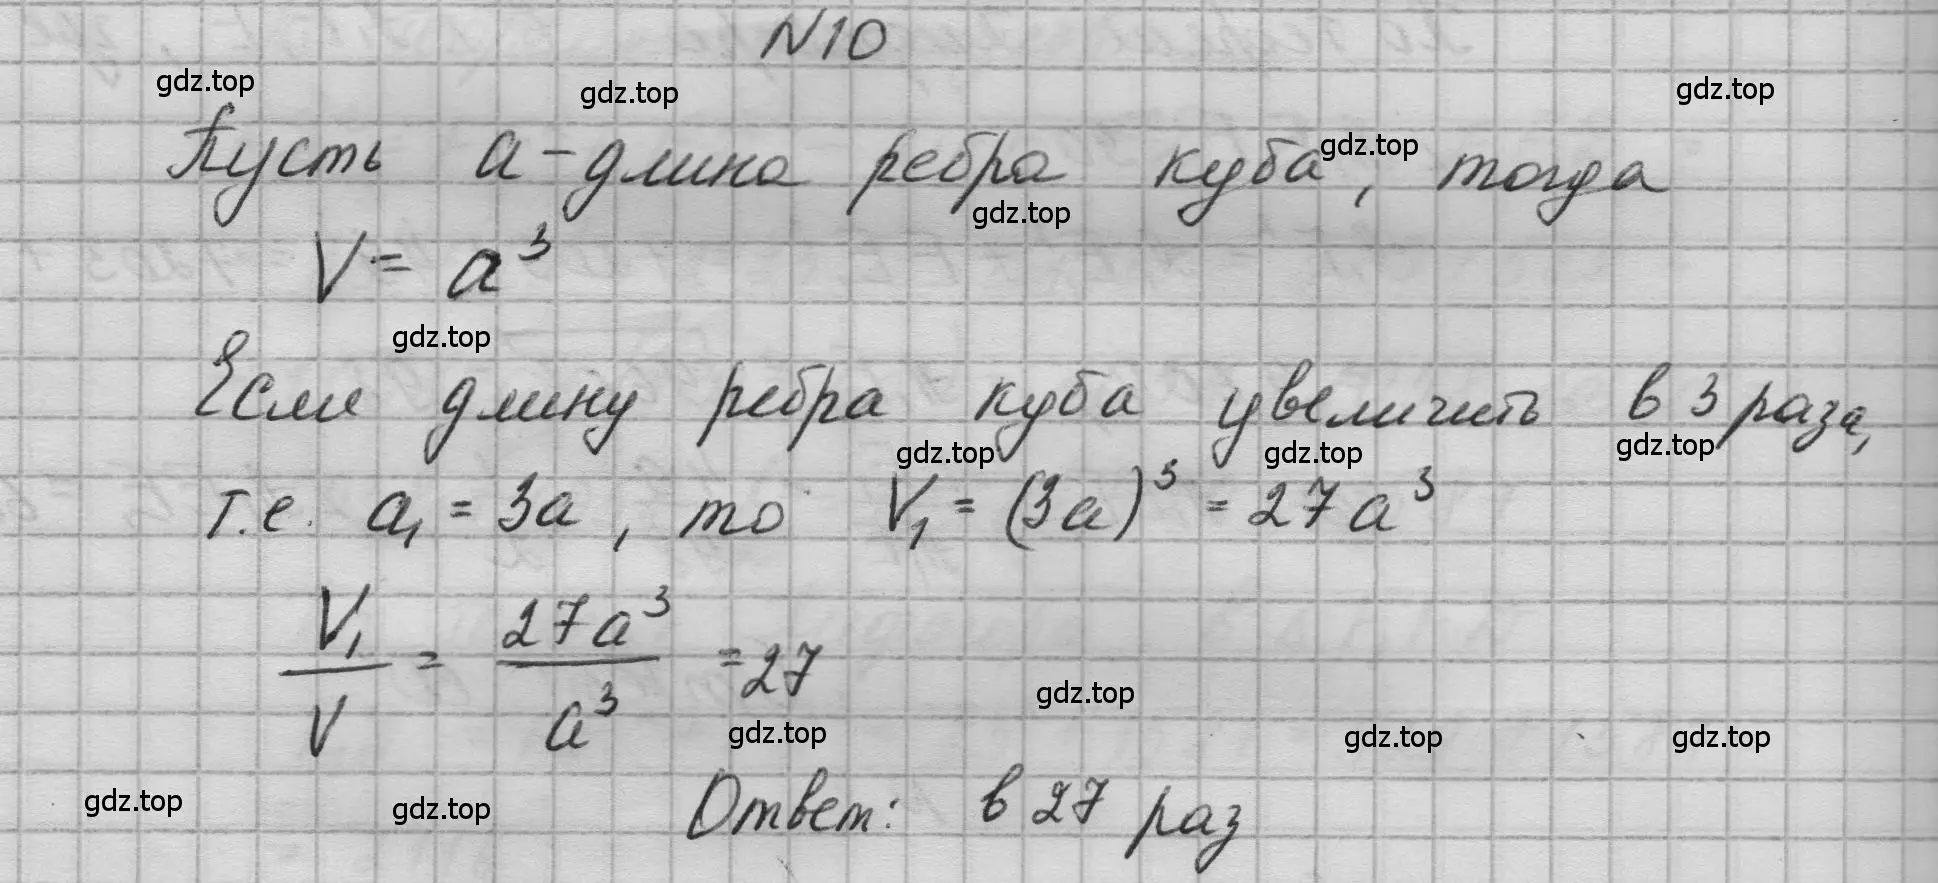 N10
gdz.top gdz.top gdz.top
Пусть a - длина ребра куба, тогда
gdz.top gdz.top
V = a³
gdz.top
Если длину ребра куба увеличить в 3 раза,
gdz.top gdz.top gdz.top
т.е. a₁ = 3a, то V₁ = (3a)³ = 27a³
V₁/V = 27a³/a³ = 27
gdz.top
gdz.top gdz.top gdz.top
gdz.top gdz.top
Ответ: в 27 раз